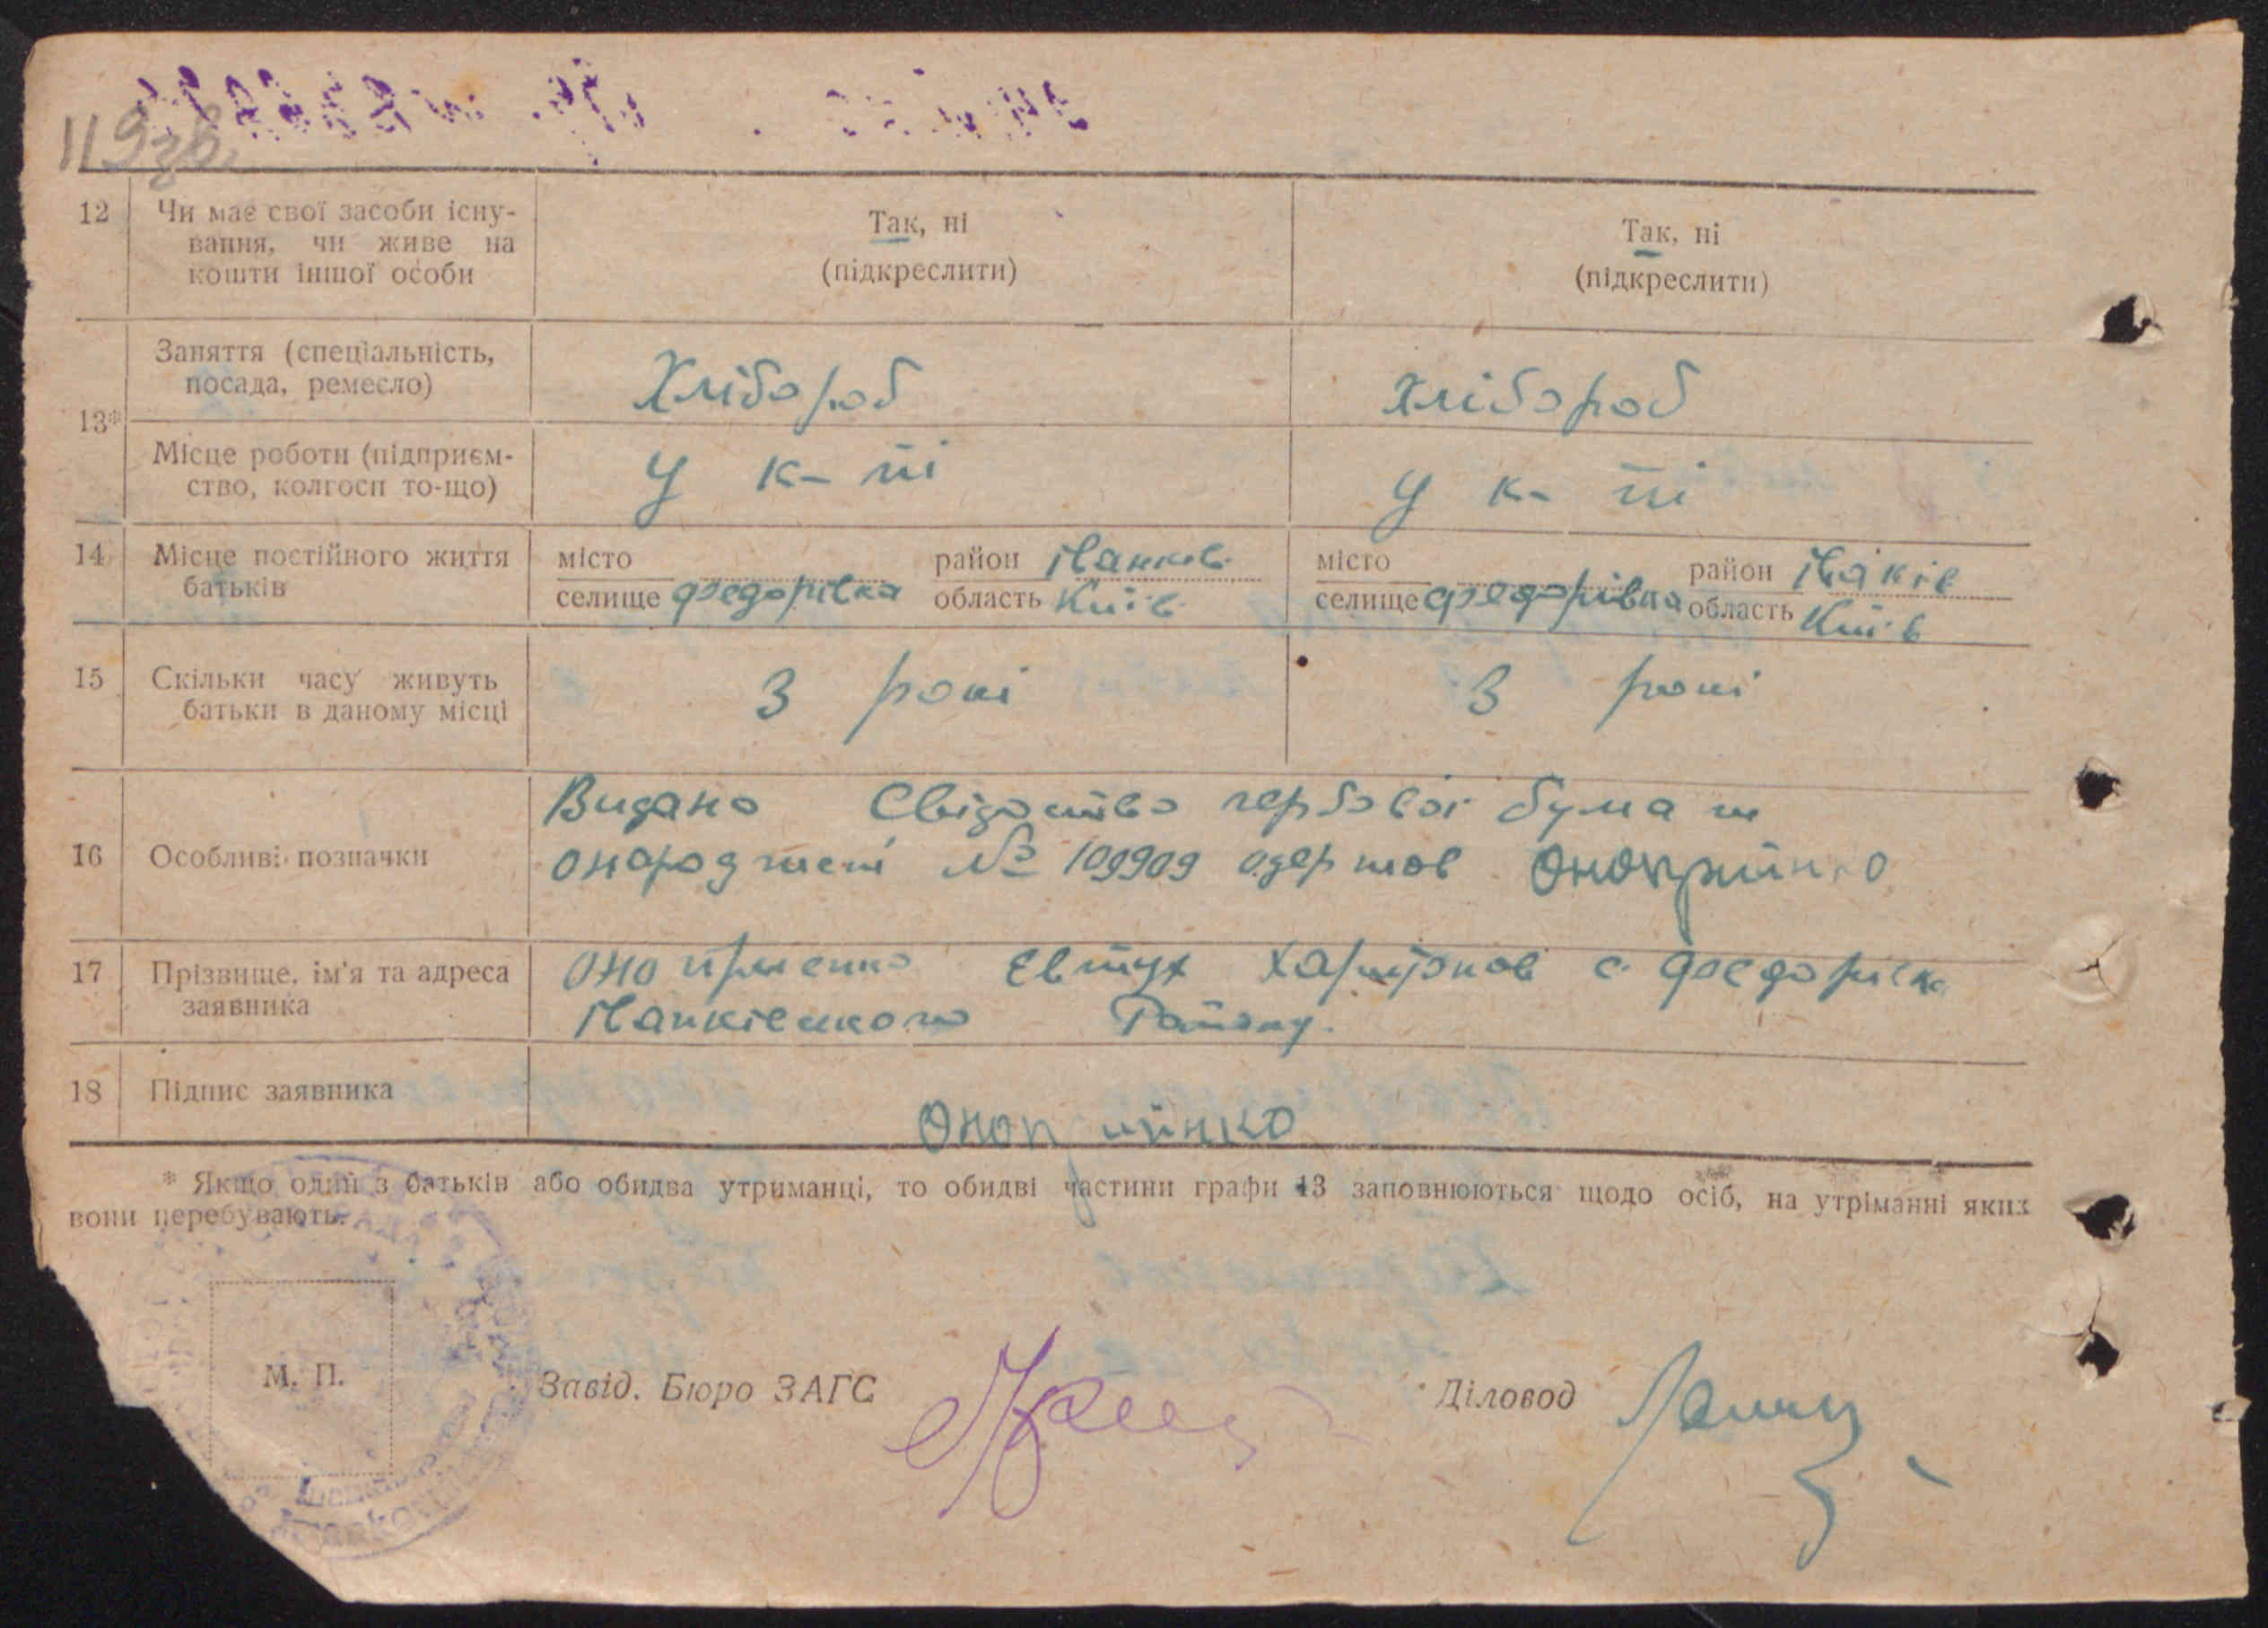 119зв.
12 Чи має свої засоби існу-
вання, чи живе на
кошти іншої особи
Так, ні
(підкреслити)
Так, ні
(підкреслити)
13*
Заняття (спеціальність,
посада, ремесло)
Хлібороб
Хлібороб
Місце роботи (підприєм-
ство, колгосп то-що)
У к-ті
У к-ті
14 Місце постійного життя
батьків
місто
селище федорівка
район Іванків
область Київ
місто
селище федорівка
район Іваків
область Київ
15 Скільки часу живуть
батьки в даному місці
З
З
16 Особливі позначки
Видано Свідоцтво гербової
№ 109909
17 Прізвище, ім'я та адреса
заявника
Оноприенко Евтух с. Федорівка
Району.
18 Підпис заявника
* Якщо один з батьків або обидва утриманці, то обидві частини графи 13 заповнюються щодо осіб, на утріманні яких
вони перебувають.
М. П.
Завід. Бюро ЗАГС
Діловод